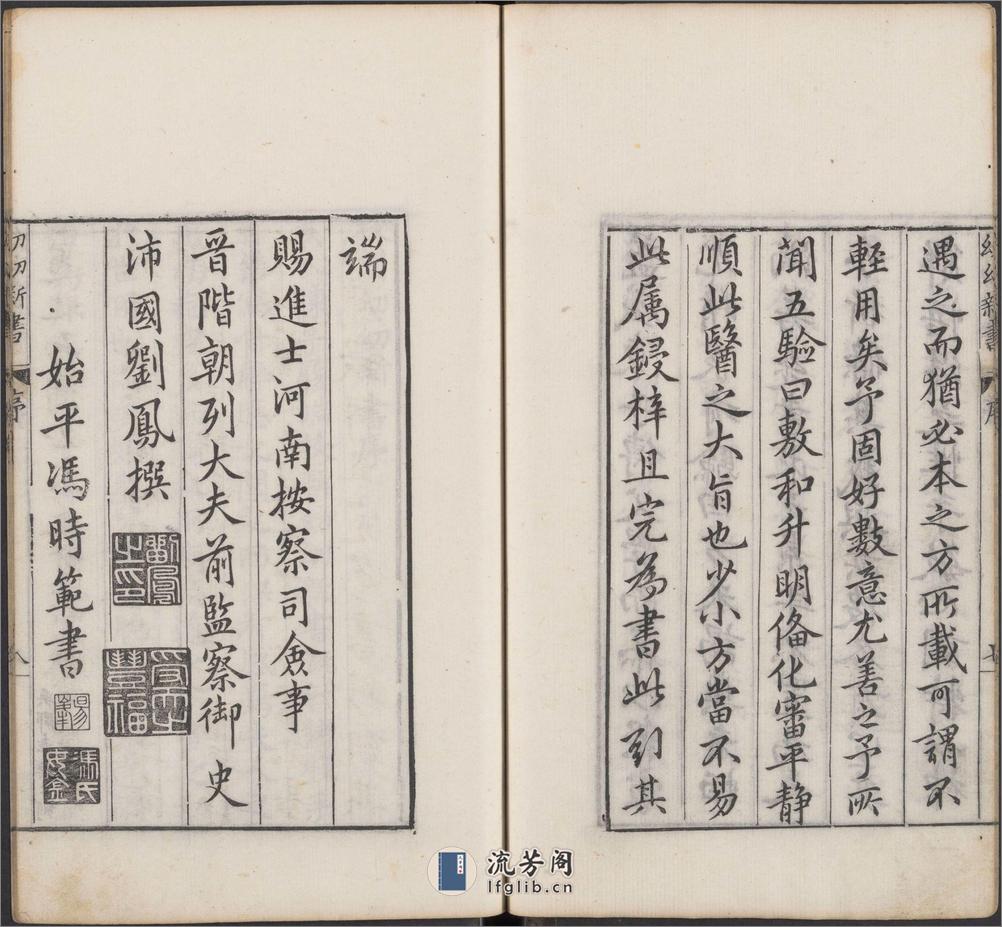 幼幼新書
序
七
遇之而猶必本之方所載可謂不
輕用矣予固好數意尤善之予所
聞五驗曰敷和升明俻化審平静
順此醫之大旨也少小方當不易
此属鋟梓且完為書此引其
端
賜進士河南按察司僉事
晉階朝列大夫前監察御史
沛國劉鳳撰
劉鳳之印
始平馮時範書
馮氏
幼幼新書
序
八
流芳阁
lfglib.cn